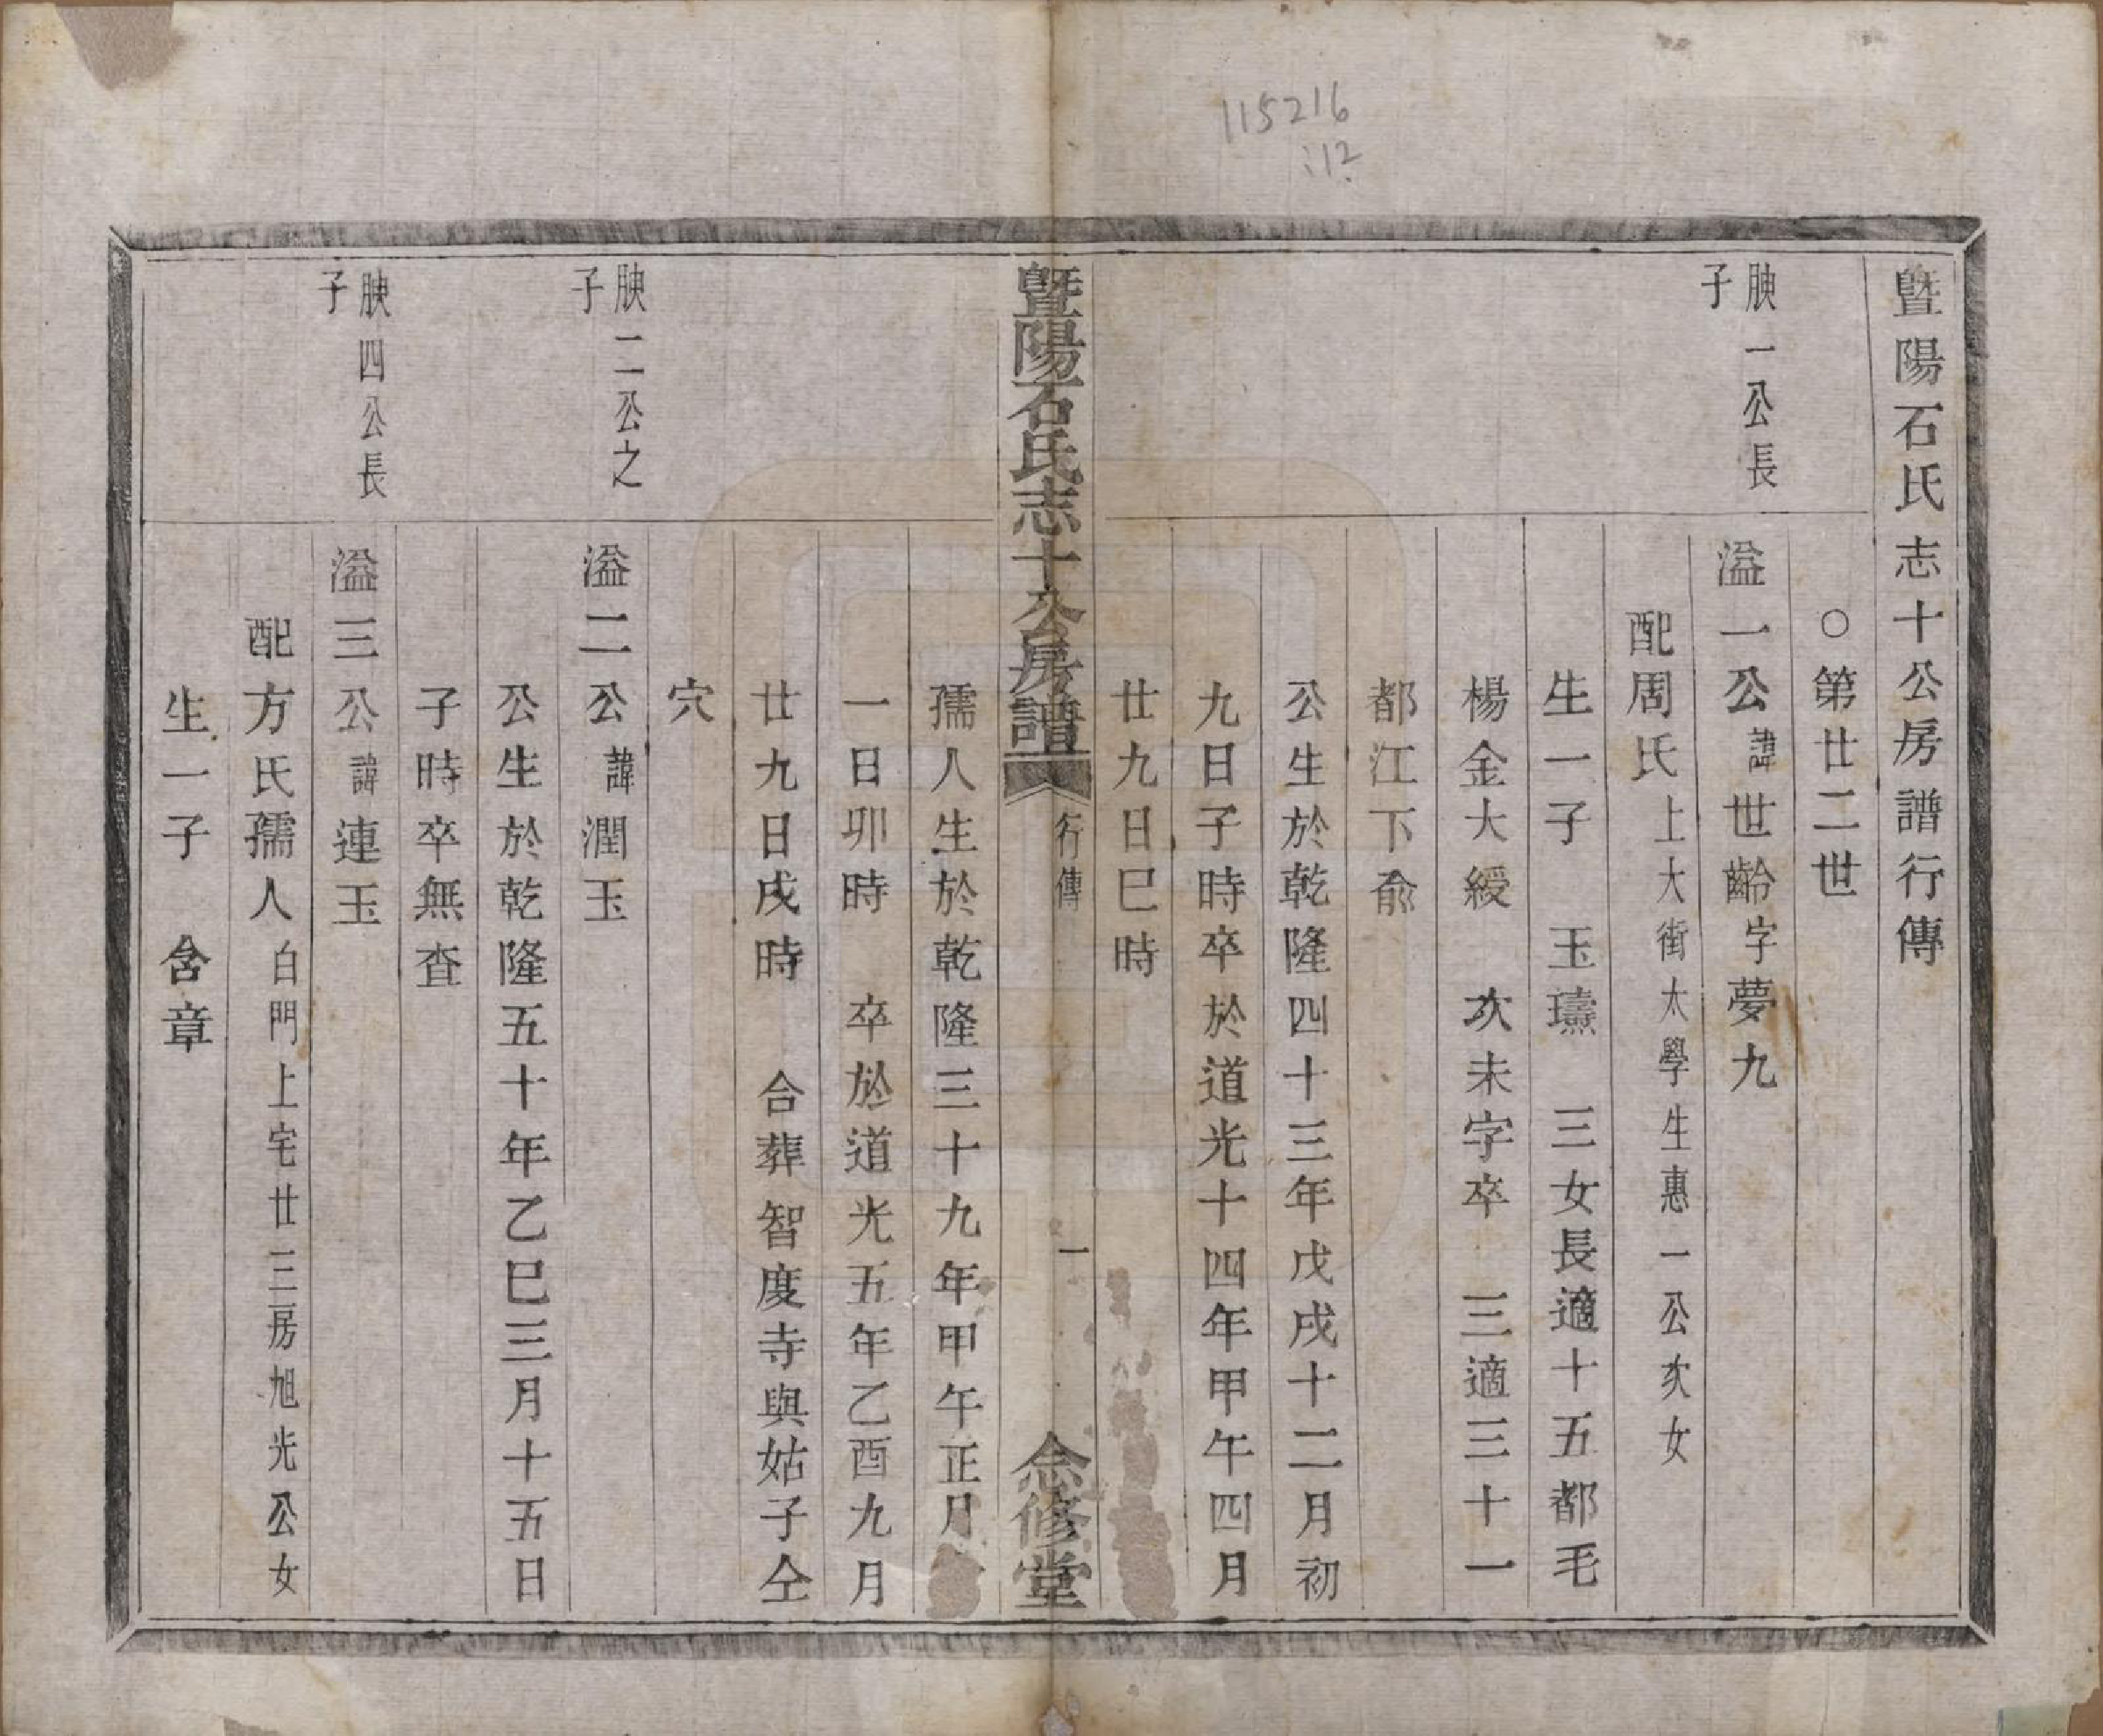 115216
:12
暨陽石氏志十公房譜行傳
○第廿二世
腴一公長
子
溢一公諱世齡字夢九
配周氏上大街太學生惠一公次女
生一子 玉璹 三女長適十五都毛
楊金大綬 次未字卒 三適三十一
都江下俞
公生於乾隆四十三年戊戌十二月初
九日子時卒於道光十四年甲午四月
廿九日巳時
暨陽石氏志十公房譜
行傳
一
念修堂
孺人生於乾隆三十九年甲午正月
一日卯時 卒於道光五年乙酉九月
廿九日戌時 合葬智度寺與姑子仝
穴
腴二公之
子
溢二公諱潤玉
公生於乾隆五十年乙巳三月十五日
子時卒無查
腴四公長
子
溢三公諱連玉
配方氏孺人白門上宅廿三房旭光公女
生一子 含章